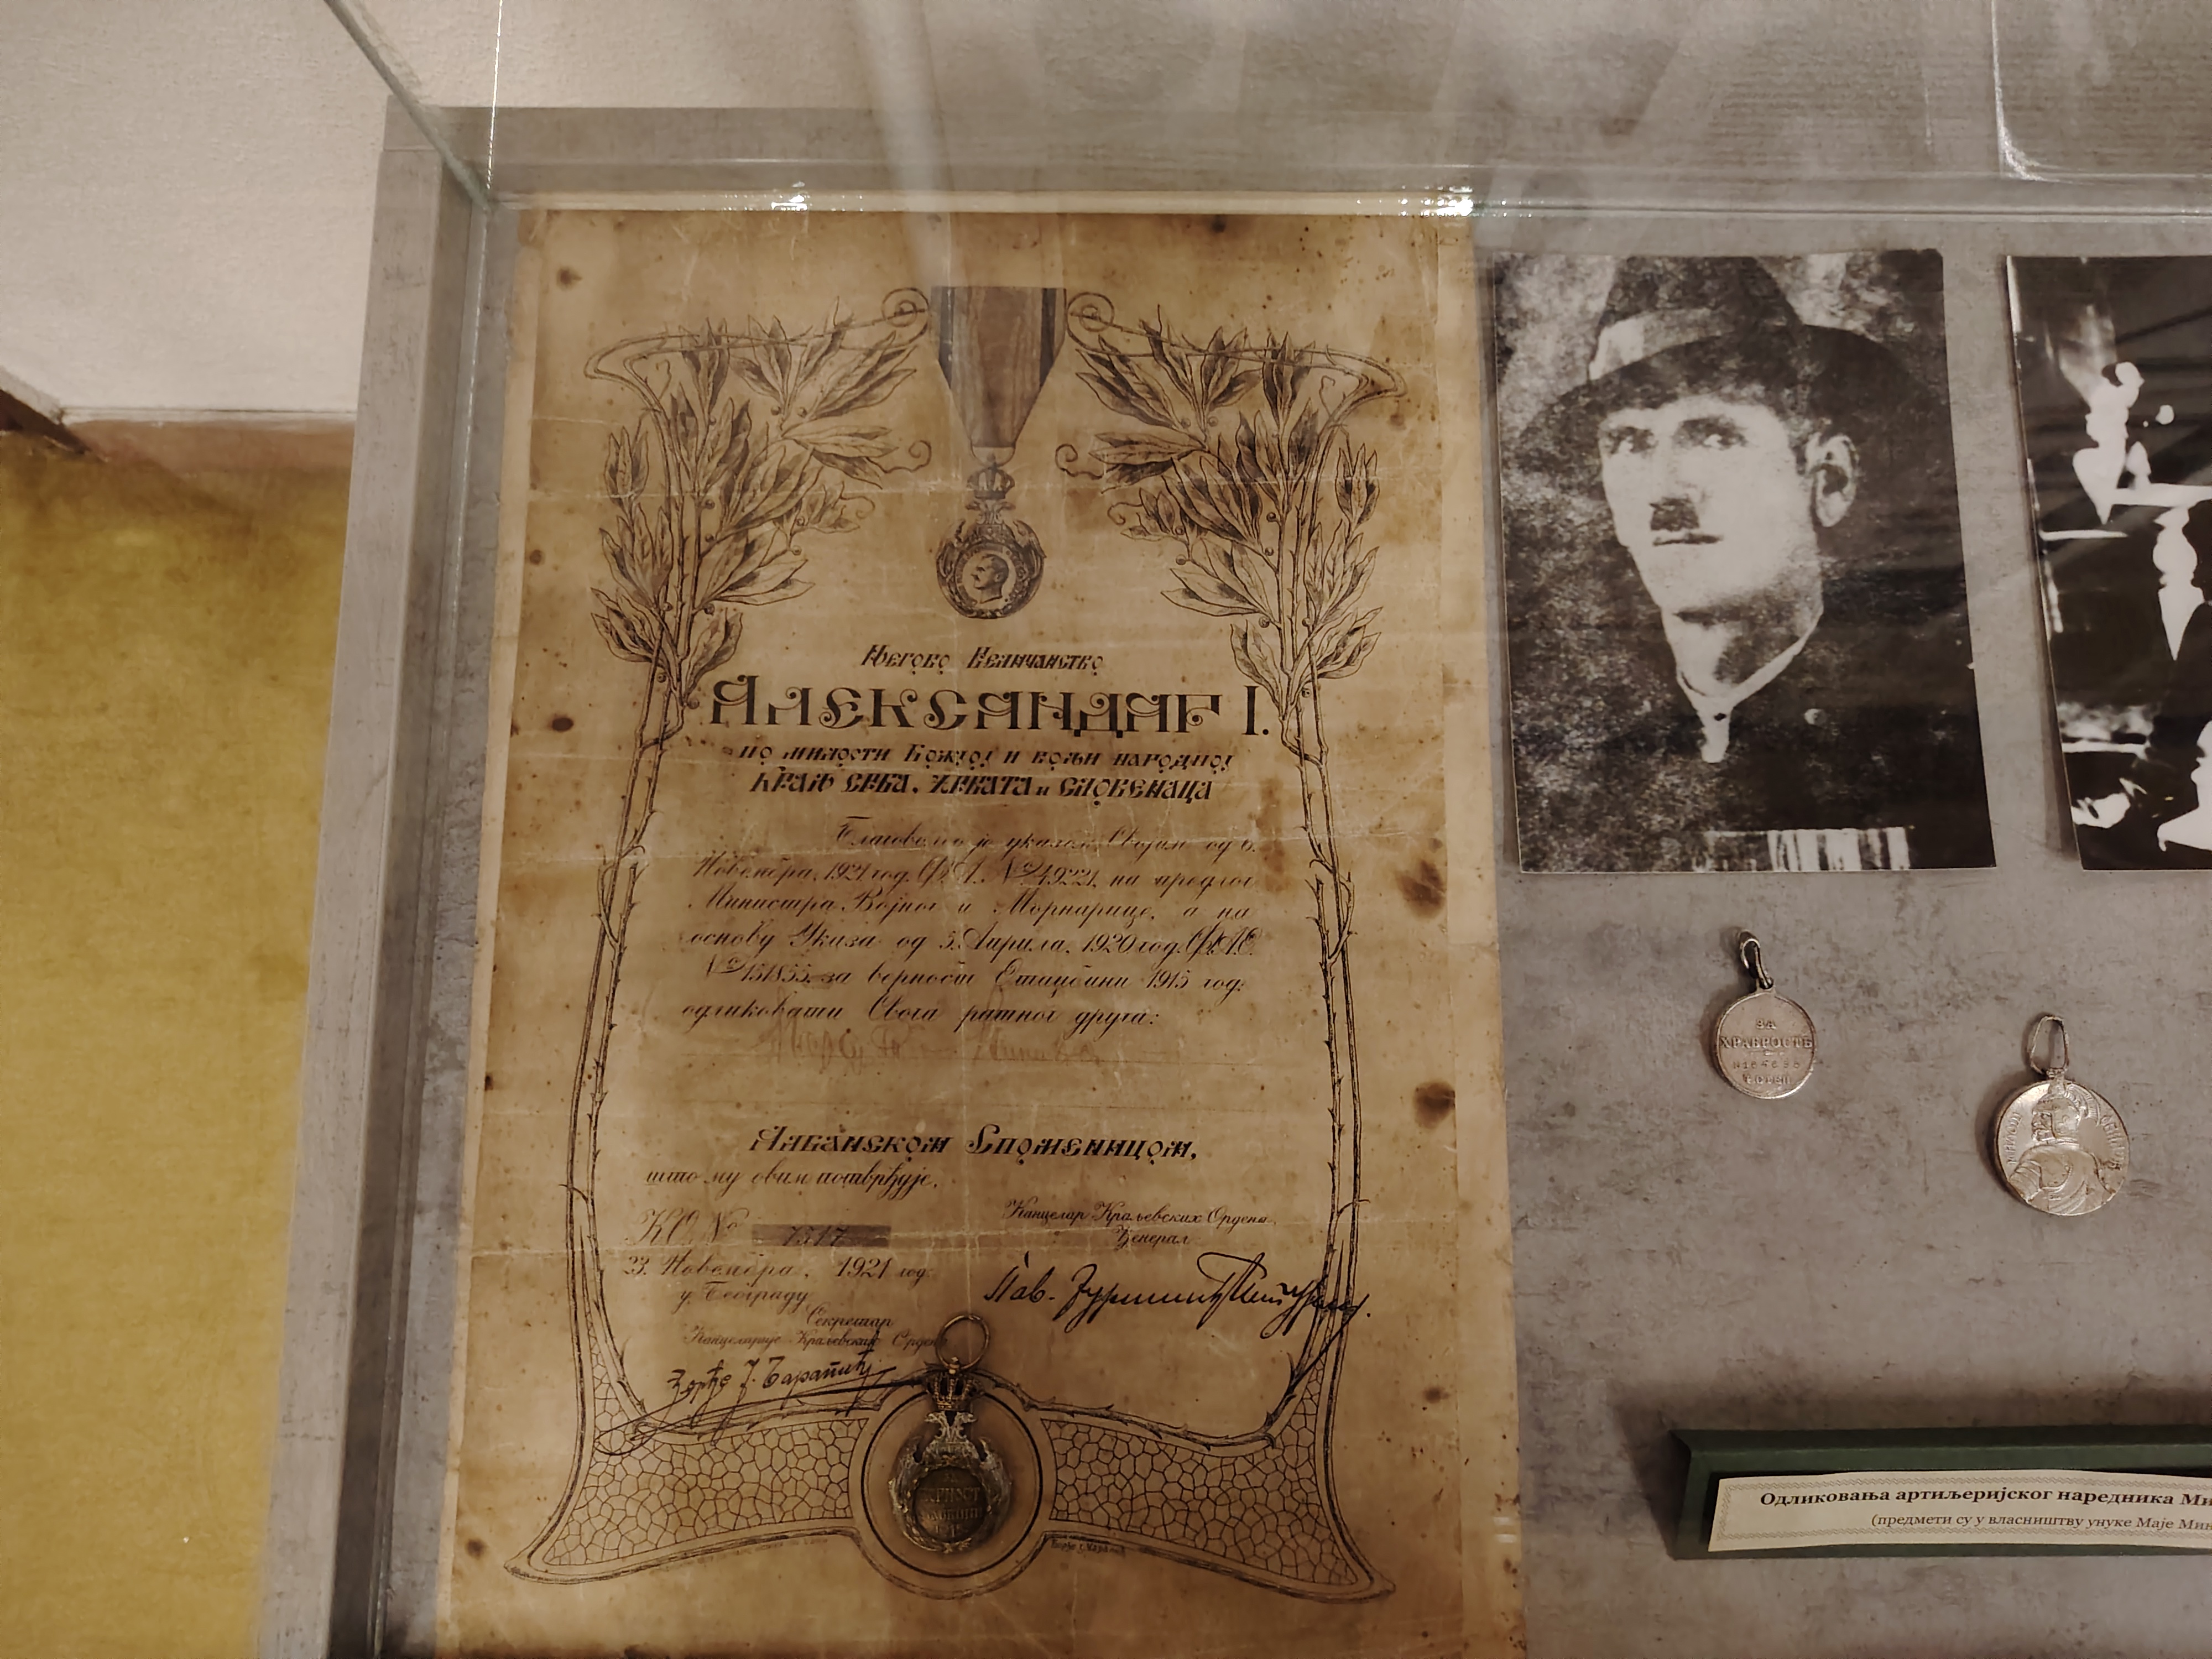 Његово Величанство
АЛЕКСАНДАР I.
по милости Божјој и вољи народној
КРАЉ СРБА, ХРВАТА и СЛОВЕНАЦА
Благоволео је указом Својим од 6.
Новембра, 1921 год. Ф.А. № 4922, на предлог
Министра Војног и Морнарице, а на
основу Указа од 5. Априла, 1920 год.
№ 151855, за верност Отаџбини 1915 год.
одликовати Свога ратног друга:
Албанском Споменицом,
што му овим потврђује.
К.О. №
23. Новембра, 1921 год.
у Београду
Канцелар Краљевских Ордена,
Ђенерал
Пав. Јуришић
Секретар
Канцеларије Краљевских Ордена
ЗА
ХРАБРОСТЬ
Одликовања артиљеријског наредника Ми
(предмети су у власништву унуке Маје Мин